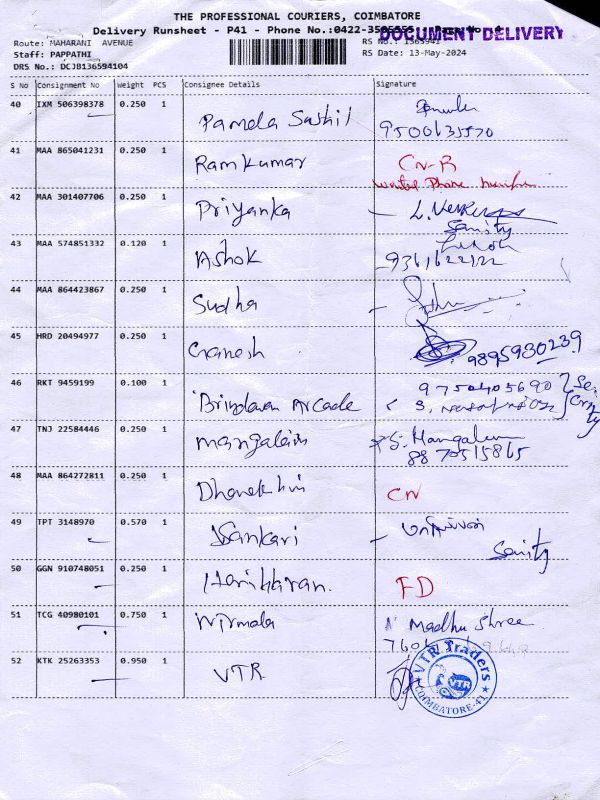 THE PROFESSIONAL COURIERS, COIMBATORE
Delivery Runsheet - P41 - Phone No.:0422-
DOCUMENT DELIVERY
Route: MAHARANI AVENUE
RS No.: 1365941
Staff: PAPPATHI
RS Date: 13-May-2024
DRS No.: DCJB136594104
S No Consignment No Weight PCS Consignee Details Signature
40 IXM 506398378 0.250 1 Pamela Sushil
9500635570
41 MAA 865041231 0.250 1 Ramkumar CN-R
Phone number
42 MAA 301407706 0.250 1 Priyanka
43 MAA 574851332 0.120 1 Ashok
9361622122
44 MAA 864423867 0.250 1 Sudha
45 HRD 20494977 0.250 1 Ganesh 9895930239
46 RKT 9459199 0.100 1 Brindavan Arcade 9750405690
47 TNJ 22584446 0.250 1 Mangalam S. Mangalam
8870515865
48 MAA 864272811 0.250 1 CN
49 TPT 3148970 0.570 1 Sankari
50 GGN 910748051 0.250 1 Hariharan. FD
51 TCG 40980101 0.750 1 Nirmala Madhu Shree
52 KTK 25263353 0.950 1 VTR
VTR Traders
VTR
COIMBATORE-41